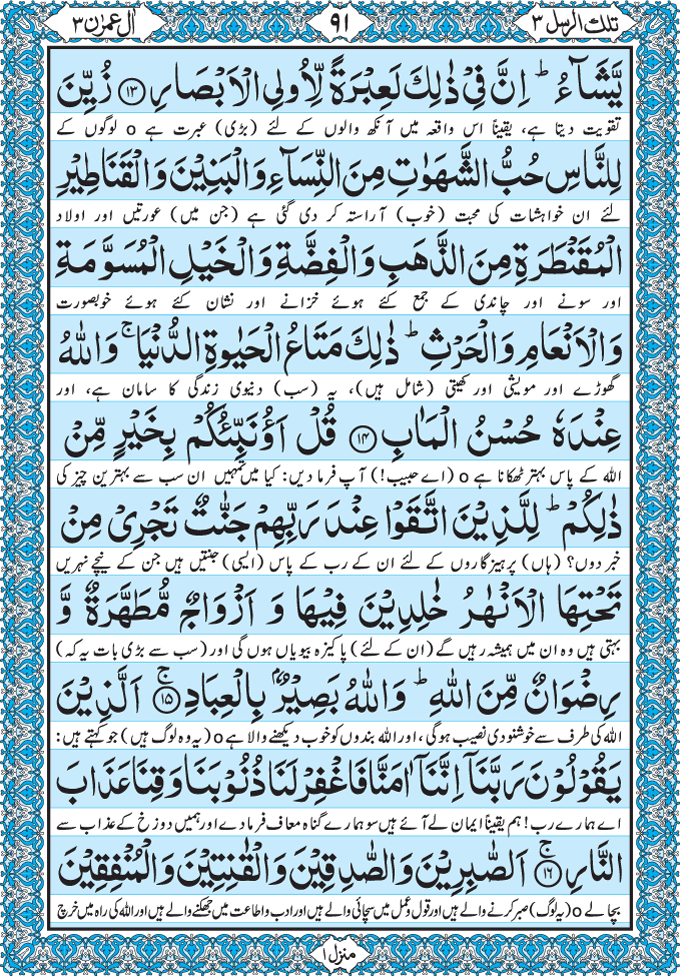 تلك الرسل ٣
٩١
اٰل عمرٰن ٣
يَّشَآءُ ؕ اِنَّ فِيْ ذٰلِكَ لَعِبْرَةً لِّاُولِي الْاَبْصَارِ ۝۱۳ زُيِّنَ
تقویت دیتا ہے، یقیناً اس واقعہ میں آنکھ والوں کے لئے (بڑی) عبرت ہے o لوگوں کے
لِلنَّاسِ حُبُّ الشَّهَوٰتِ مِنَ النِّسَآءِ وَالْبَنِيْنَ وَالْقَنَاطِيْرِ
لئے ان خواہشات کی محبت (خوب) آراستہ کر دی گئی ہے (جن میں) عورتیں اور اولاد
الْمُقَنْطَرَةِ مِنَ الذَّهَبِ وَالْفِضَّةِ وَالْخَيْلِ الْمُسَوَّمَةِ
اور سونے اور چاندی کے جمع کئے ہوئے خزانے اور نشان کئے ہوئے خوبصورت
وَالْاَنْعَامِ وَالْحَرْثِ ؕ ذٰلِكَ مَتَاعُ الْحَيٰوةِ الدُّنْيَا ۚ وَاللّٰهُ
گھوڑے اور مویشی اور کھیتی (شامل ہیں)، یہ (سب) دنیوی زندگی کا سامان ہے، اور
عِنْدَهٗ حُسْنُ الْمَاٰبِ ۝۱۴ قُلْ اَؤُنَبِّئُكُمْ بِخَيْرٍ مِّنْ
اللہ کے پاس بہتر ٹھکانا ہے o (اے حبیب!) آپ فرما دیں: کیا میں تمہیں ان سب سے بہترین چیز کی
ذٰلِكُمْ ؕ لِلَّذِيْنَ اتَّقَوْا عِنْدَ رَبِّهِمْ جَنّٰتٌ تَجْرِيْ مِنْ
خبر دوں؟ (ہاں) پرہیزگاروں کے لئے ان کے رب کے پاس (ایسی) جنتیں ہیں جن کے نیچے نہریں
تَحْتِهَا الْاَنْهٰرُ خٰلِدِيْنَ فِيْهَا وَ اَزْوَاجٌ مُّطَهَّرَةٌ وَّ
بہتی ہیں وہ ان میں ہمیشہ رہیں گے (ان کے لئے) پاکیزہ بیویاں ہوں گی اور (سب سے بڑی بات یہ کہ)
رِضْوَانٌ مِّنَ اللّٰهِ ؕ وَاللّٰهُ بَصِيْرٌۢ بِالْعِبَادِ ۝۱۵ۚ اَلَّذِيْنَ
اللہ کی طرف سے خوشنودی نصیب ہوگی، اور اللہ بندوں کو خوب دیکھنے والا ہے o (یہ وہ لوگ ہیں) جو کہتے ہیں:
يَقُوْلُوْنَ رَبَّنَاۤ اِنَّنَاۤ اٰمَنَّا فَاغْفِرْ لَنَا ذُنُوْبَنَا وَقِنَا عَذَابَ
اے ہمارے رب! ہم یقیناً ایمان لے آئے ہیں سو ہمارے گناہ معاف فرما دے اور ہمیں دوزخ کے عذاب سے
النَّارِ ۝۱۶ۚ اَلصّٰبِرِيْنَ وَالصّٰدِقِيْنَ وَالْقٰنِتِيْنَ وَالْمُنْفِقِيْنَ
بچا لے o (یہ لوگ) صبر کرنے والے ہیں اور قول و عمل میں سچائی والے ہیں اور ادب و اطاعت میں جھکنے والے ہیں اور اللہ کی راہ میں خرچ
منزل ۱